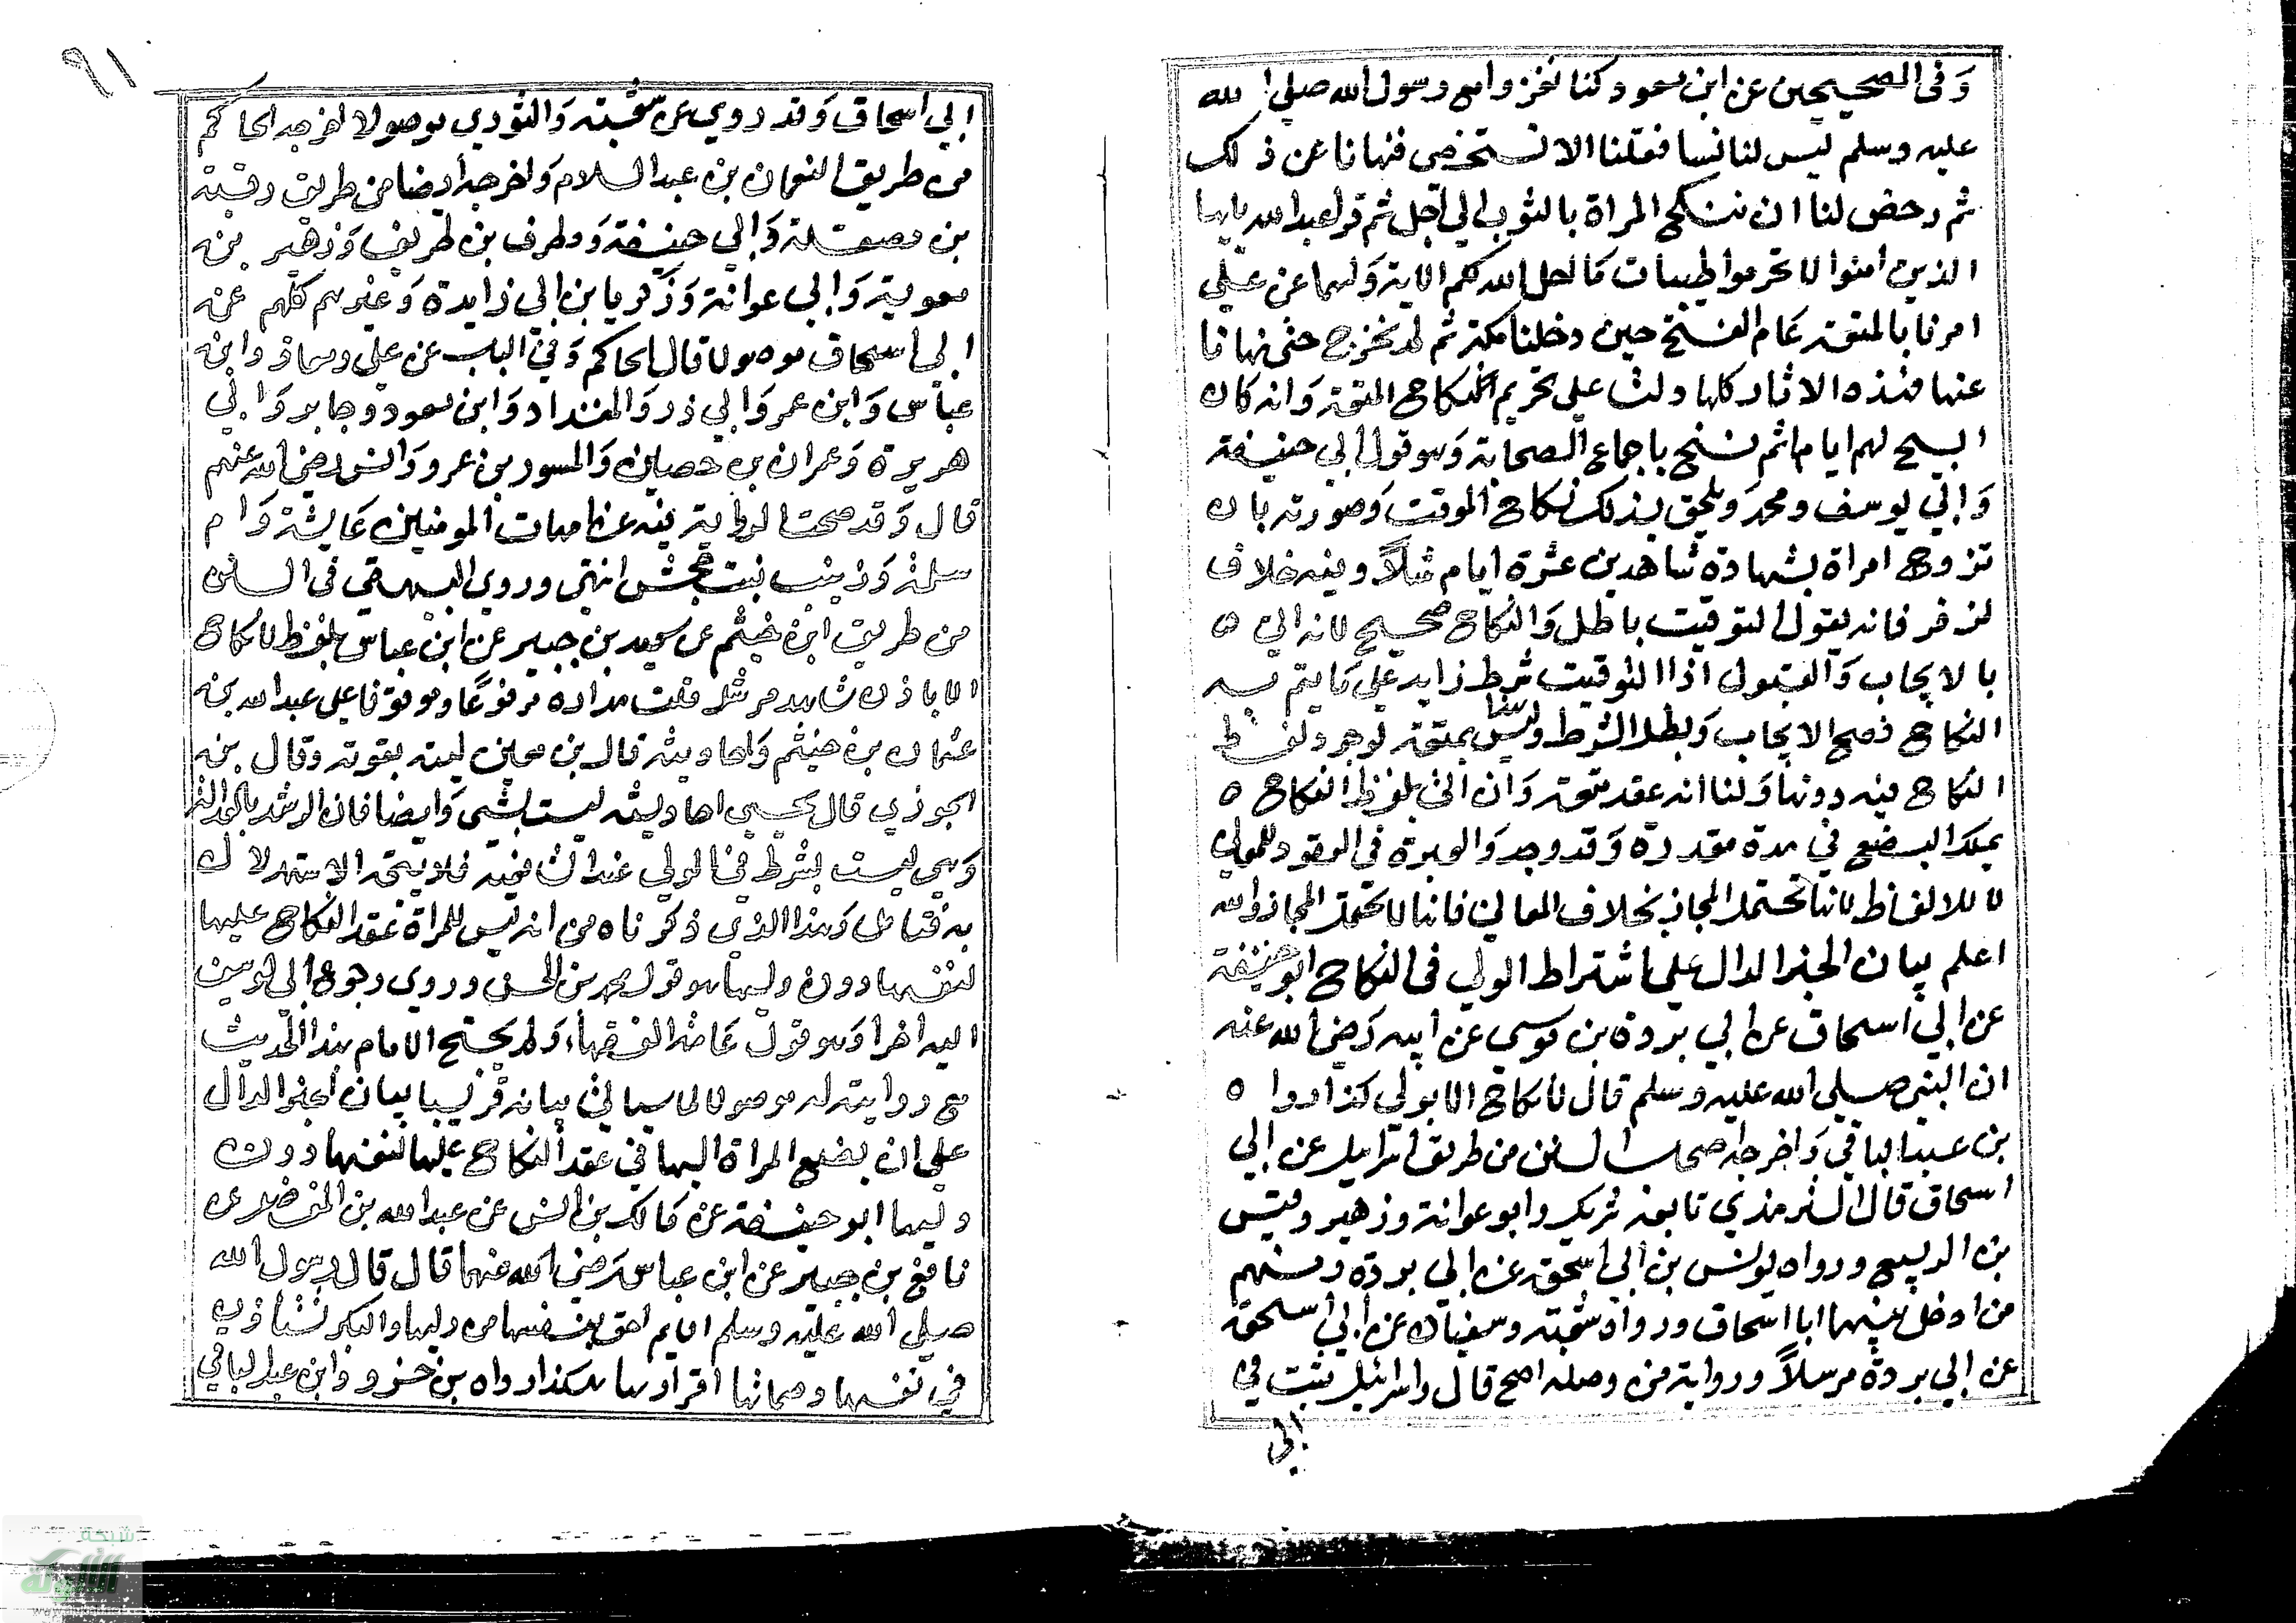 وفى الصحيحين عن ابن مسعود كنا نغزوا مع رسول الله صلي الله
عليه وسلم ليس لنا نسا فقلنا الا نستخصي فنهانا عن ذلك
ثم رخص لنا ان ننكح المراة بالثوب الي اجل ثم قرا عبد الله يايها
الذين امنوا لا تحرموا طيبات ما احل الله لكم الاية ولهما عن علي
امرنا بالمتعة عام الفتح حين دخلنا مكة ثم لم نخرج حتى نهانا
عنها فهذه الاثار كلها دلت علي تحريم نكاح المتعة وانه كان
ابيح لهم ايام ثم نسخ باجماع الصحابة وهو قول ابي حنيفة
وابي يوسف ومحمد ويلحق بذلك نكاح الموقت وصورته بان
تزوج امراة بشهادة شاهدين عشرة ايام مثلاً وفيه خلاف
لزفر فانه يقول التوقيت باطل والنكاح صحيح لانه اتي ٥
بالايجاب والقبول اذا التوقيت شرط زايد علي ما يتم به
النكاح فصح الايجاب وبطل الشرط وليس بمتعة لوجود لفظ
النكاح فيه دونها ولنا انه عقد متعة وان اتى بلفظ النكاح ٥
يملك البضع في مدة مقدرة وقد وجد والعبرة في العقود للمعاني
لا للالفاظ لانها تحتمل المجاز بخلاف المعاني فانها لا تحتمل المجاز والله
اعلم بيان الخبر الدال علي اشتراط الولي فى النكاح ابو حنيفة
عن ابي اسحاق عن ابي بردة بن موسي عن ابيه رضي الله عنه
ان النبي صلي الله عليه وسلم قال لا نكاح الا بولي كذا روا ٥
بن عبد الباقي واخرجه اصحاب السنن من طريق اسرايل عن ابي
اسحاق قال الترمذي تابعه شريك وابو عوانة وزهير وقيس
بن الربيع ورواه يونس بن ابي اسحق عن ابي بردة ومنهم
من ادخل بينهما ابا اسحاق ورواه شعبة وسفيان عن ابي اسحق
عن ابي بردة مرسلاً ورواية من وصله اصح قال واسرائيل يثبت في
ابي
٩١
ابي اسحاق وقد روي عن شعبة والثوري موصولا اخرجه الحاكم
من طريق النعمان بن عبد السلام واخرجه ايضا من طريق رقبة
بن مصقلة وابي حنيفة ومطرف بن طريف وزهير بن
معوية وابي عوانة وزكريا بن ابي زايدة وغيرهم كلهم عن
ابي اسحاق موصولا قال الحاكم وفي الباب عن علي ومعاذ وابن
عباس وابن عمر وابي ذر والمقداد وابن مسعود وجابر وابي
هريرة وعمران بن حصين والمسور بن عمرو وانس رضي الله عنهم
قال وقد صحت الرواية فيه عن امهات المومنين عايشة وام
سلمة وزينب بنت جحش انتهي وروي البيهقي فى السنن
من طريق ابن خيثم عن سعيد بن جبير عن ابن عباس بلفظ لا نكاح
الا باذن ولي مرشد قلت مداره مرفوعًا وموقوفا علي عبد الله بن
عثمان بن خيثم واحاديثه قال بن معين ليست بقوية وقال بن
الجوزي قال يحيي احاديثه ليست بشي وايضا فان الرشد
وهي ليست بشرط في الولي عند الشافعية فلا يتم الاستدلال
به فتامل وهذا الذي ذكرناه من انه ليس للمراة عقد النكاح عليها
لنفسها دون وليها هو قول محمد بن الحسن وروي رجوع ابي يوسف
اليه اخرا وهو قول عامة الفقهاء ولم يحتج الامام بهذا الحديث
مع روايته له موصولا لما سياتي بيانه قريبا بيان الخبر الدال
علي ان بضع المراة اليها في عقد النكاح عليها لنفسها دون
وليها ابو حنيفة عن مالك بن انس عن عبد الله بن الفضل عن
نافع بن جبير عن ابن عباس رضي الله عنهما قال قال رسول الله
صلي الله عليه وسلم الايم احق بنفسها من وليها والبكر تستاذن
في نفسها وصماتها اقرارها هكذا رواه بن خسرو وابن عبد الباقي